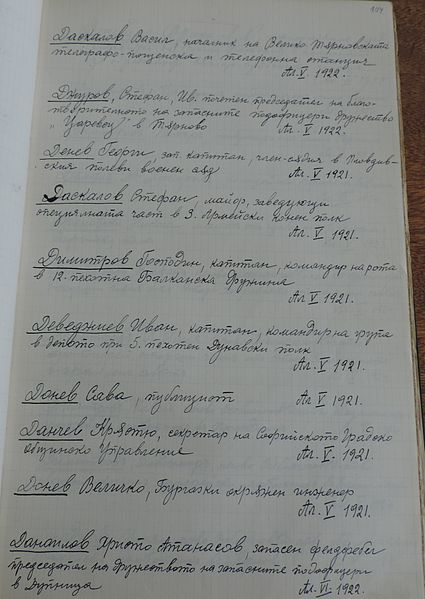 104
Даскалов Васил, началник на Велико Търновската
телеграфо-пощенска и телефонна станция
Ал. V. 1922.
Стефан, Ив. почетен председател на благо-
творителното на запасните подофицери дружество
„Царевец" в Търново Ал. V 1922.
Денев Георги, зап. капитан, член-съдия в Пловдив-
ския полеви военен съд Ал. V 1921.
Даскалов Стефан, майор, заведующи
специялната част в 3. Армейски конен полк
Ал. V 1921.
Димитров Господин, капитан, командир на рота
в 12. пехотна Балканска дружина
Ал. V 1921.
Деведжиев Иван, капитан, командир на група
в депото при 5. пехотен Дунавски полк
Ал. V 1921.
Донев Сава, публицист Ал. V 1921.
Данчев Кръстю, секретар на Софийското Градско
общинско управление Ал. V. 1921.
Донев Величко, Бургазки окръжен инженер
Ал. V 1921.
Данаилов Христо Атанасов, запасен фелдфебел
председател на дружеството на запасните подофицери
в Дупница Ал. VI. 1922.